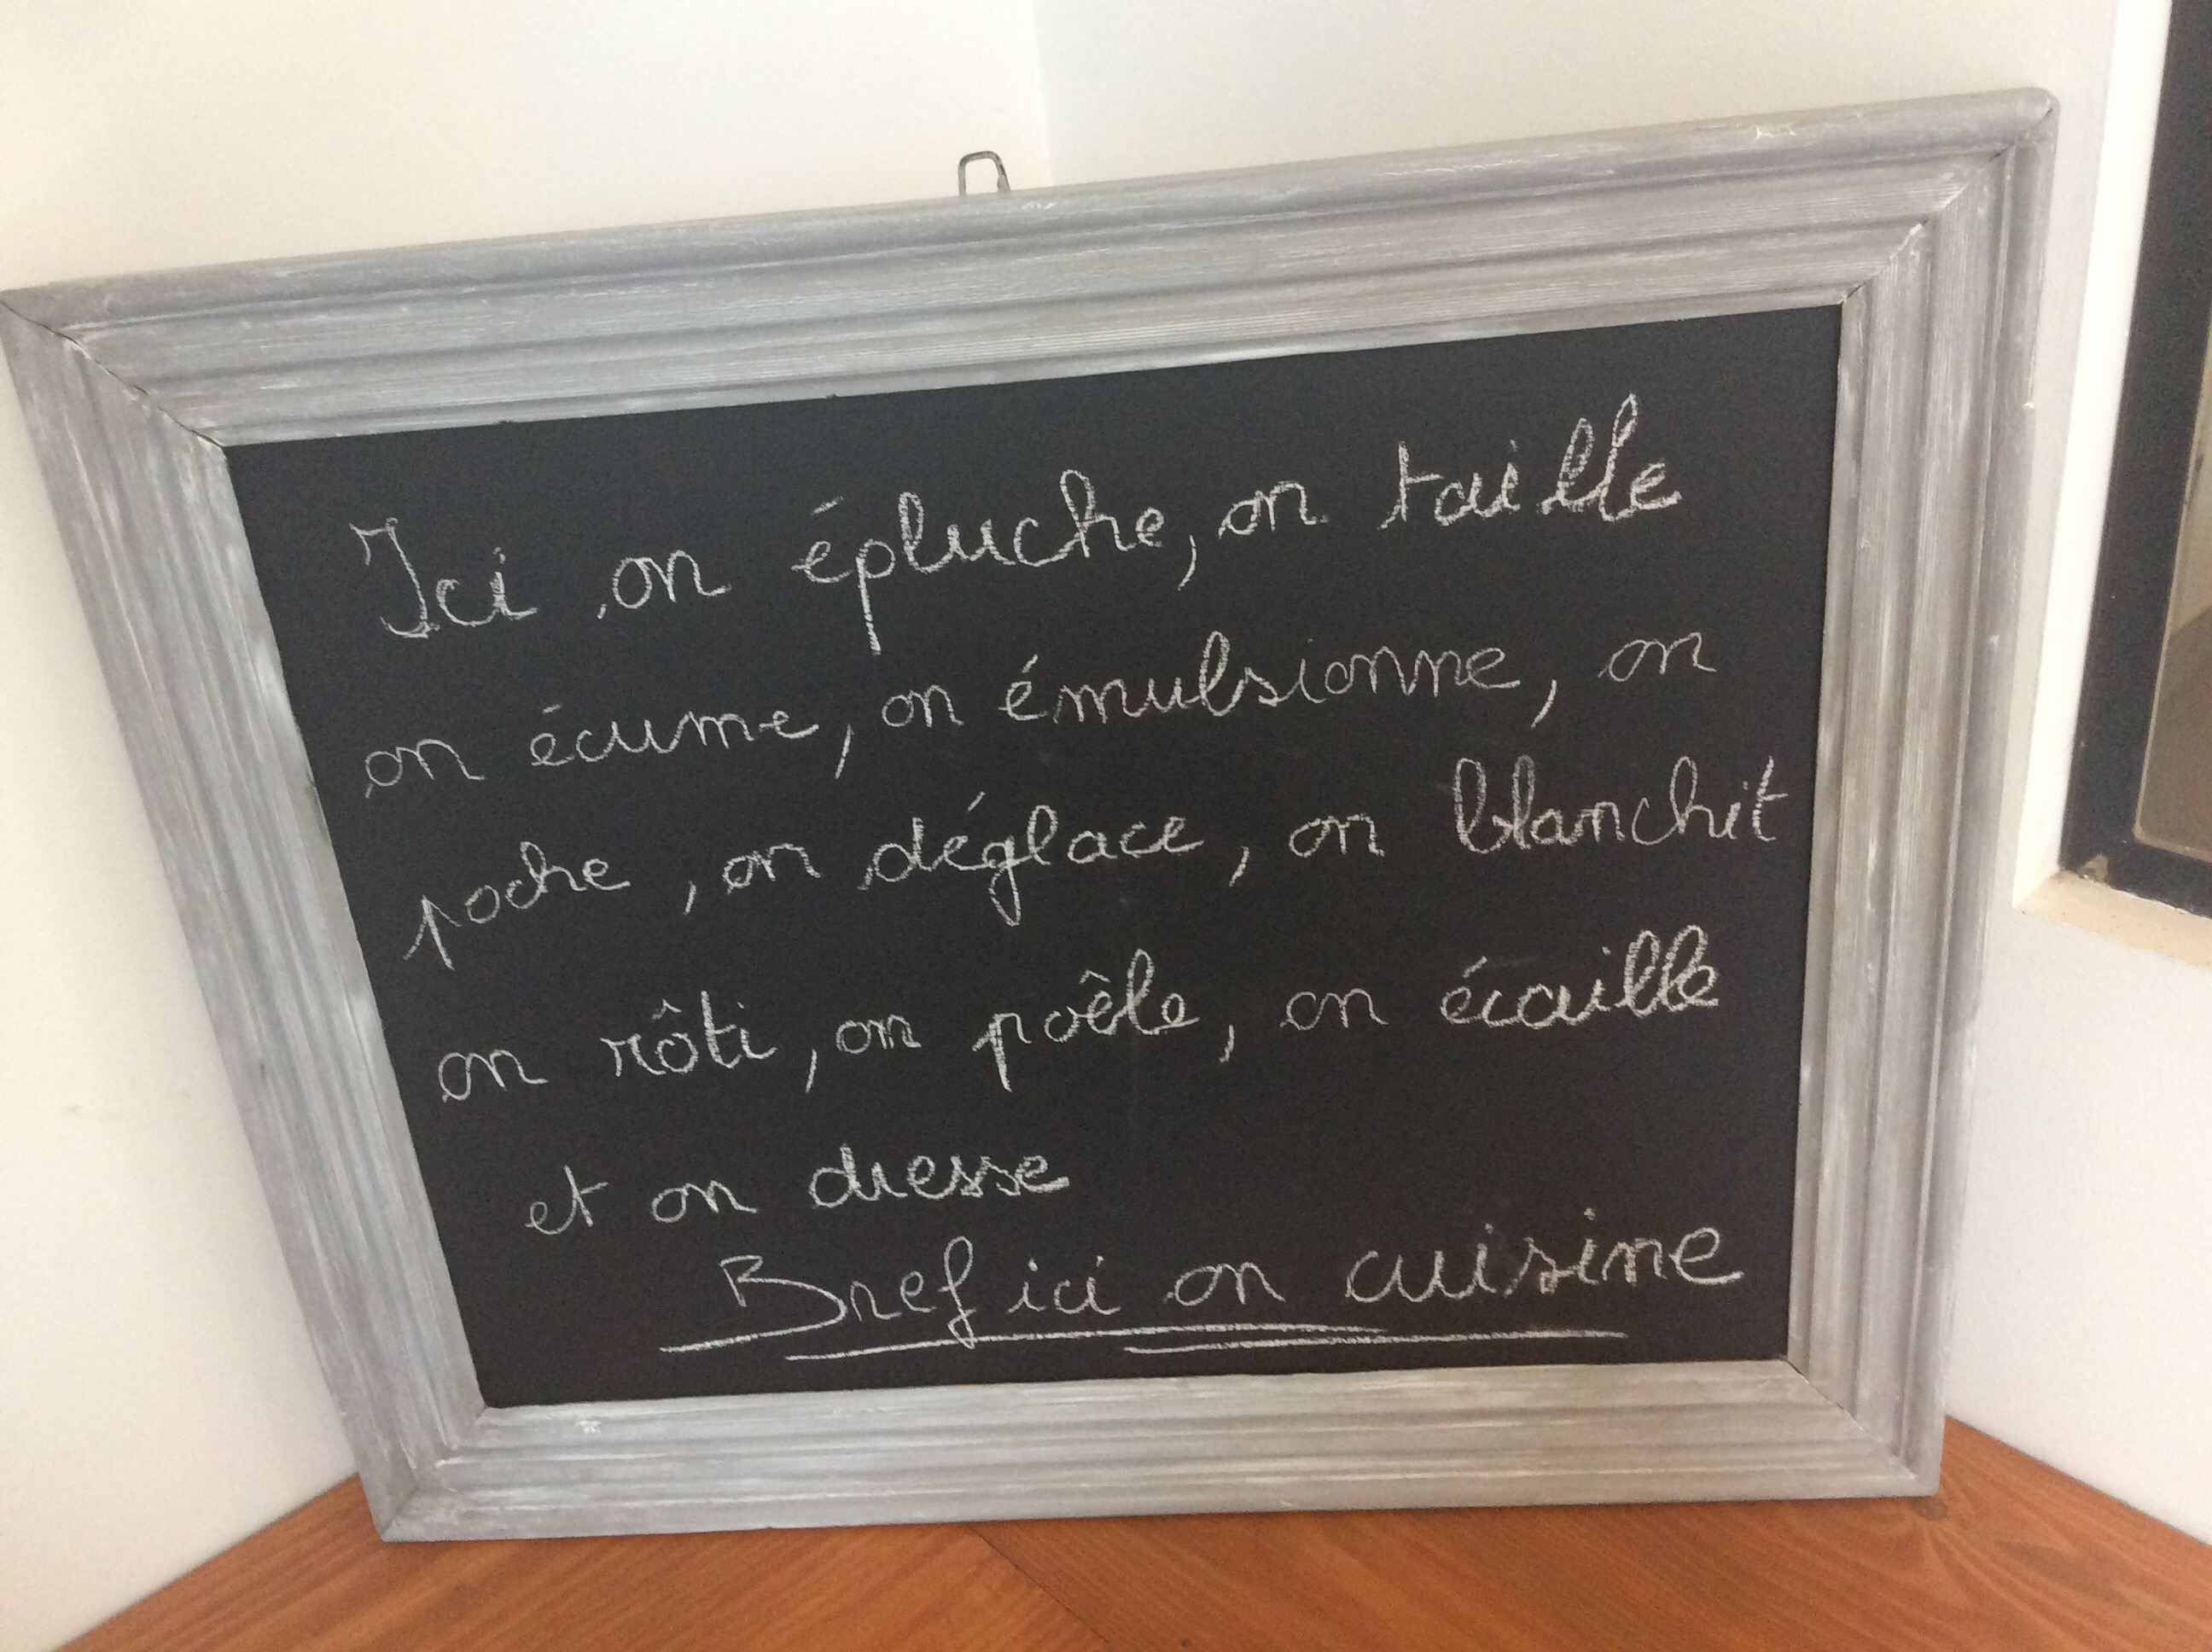 Ici on épluche, on taille
on écume, on émulsionne, on
poche, on déglace, on blanchit
on rôti, on poêle, on écaille
et on dresse
Bref ici on cuisine